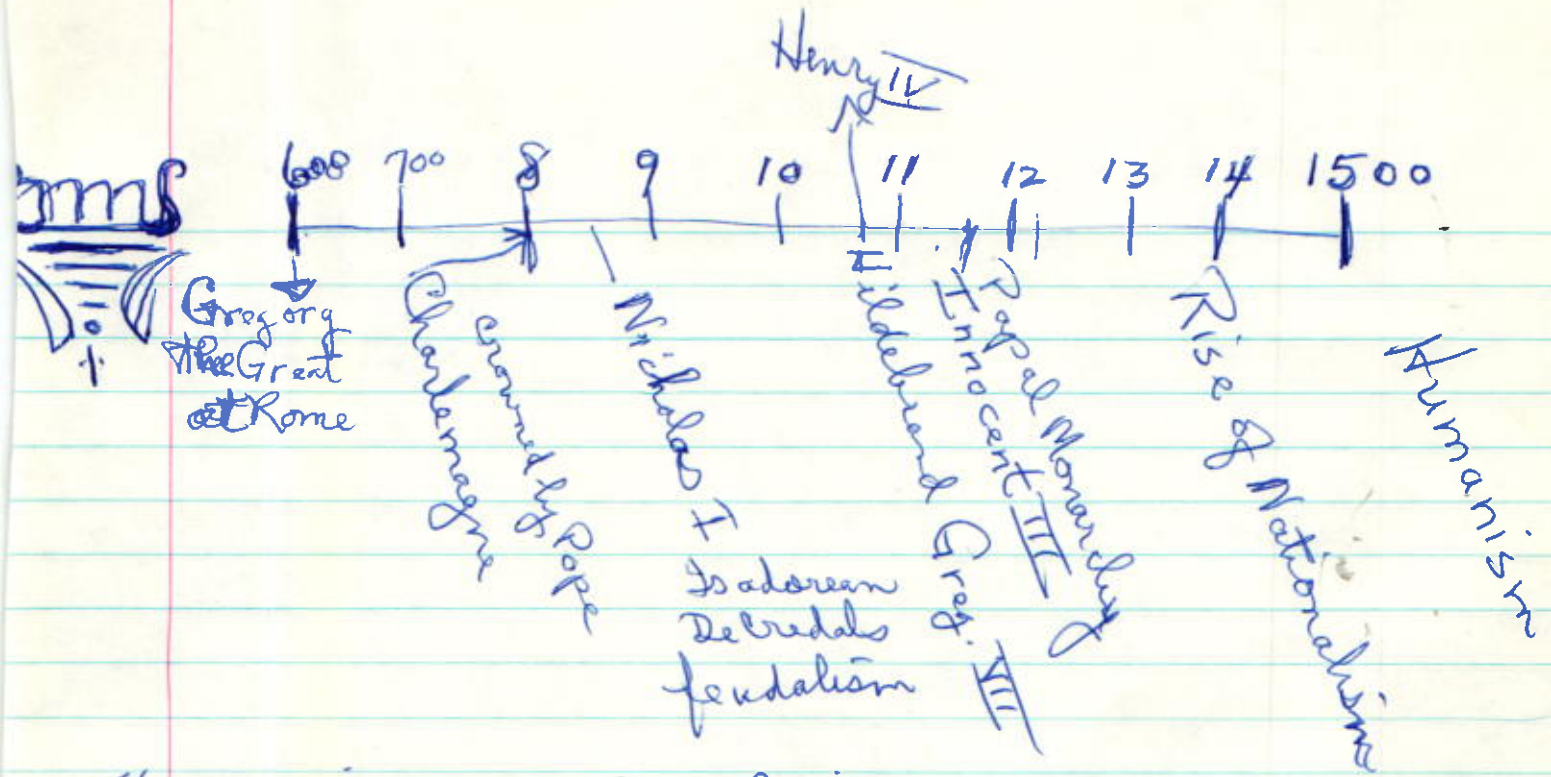 Henry IV
600 700 8 9 10 11 12 13 14 1500
Gregory
the Great
at Rome
Charlemagne
crowned by Pope
Nicholas I
Isadorean
Decredals
feudalism
Hildebrand Greg. VII
Innocent III
Papal Monarchy
Rise of Nationalism
Humanism